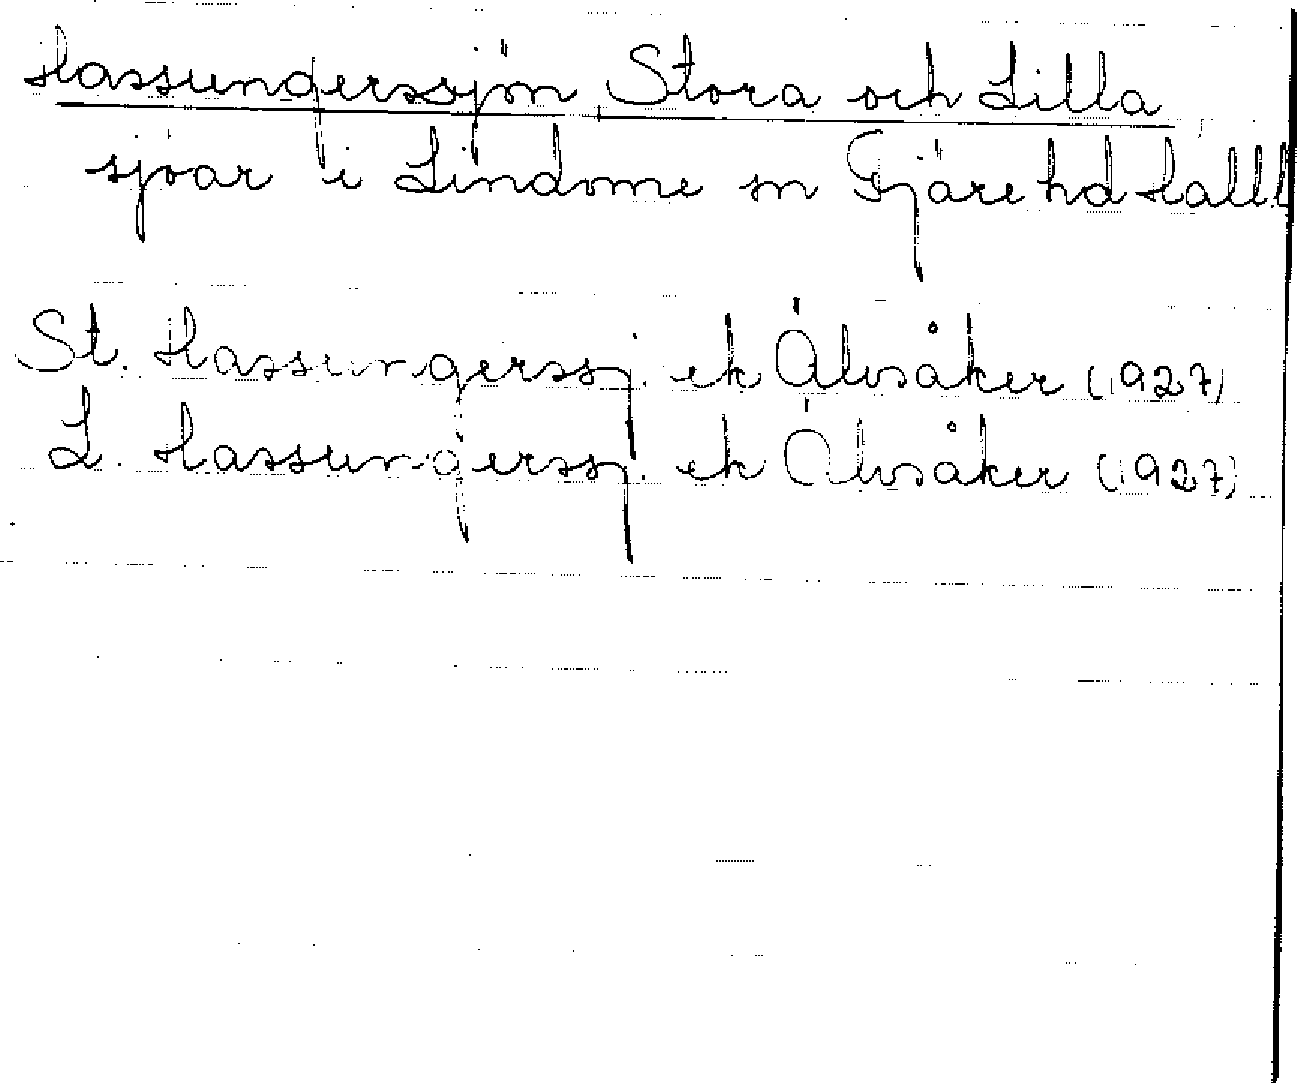 Hassungerssjön Stora och Lilla
sjöar i Lindome sn Fjäre hd Hall.
St. Hassungerssj. ek Älvsåker (1927)
L. Hassungerssj. ek Älvsåker (1927)